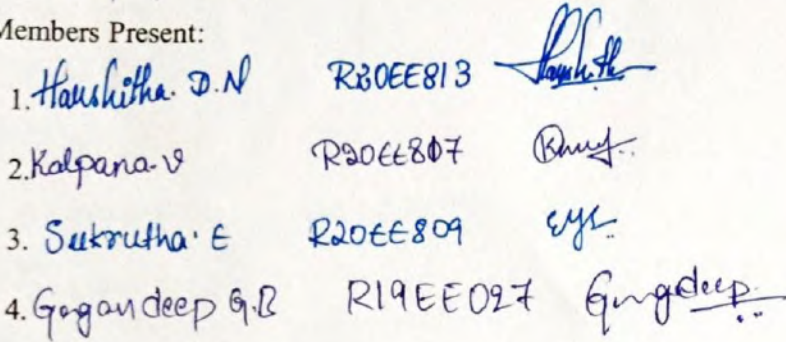 Members Present:
1. Harshitha. D.N R20EE813 Harshith
2. Kalpana. V R20EE807
3. Sukrutha. E R20EE809
4. Gagandeep G.B R19EE027 Gagdeep